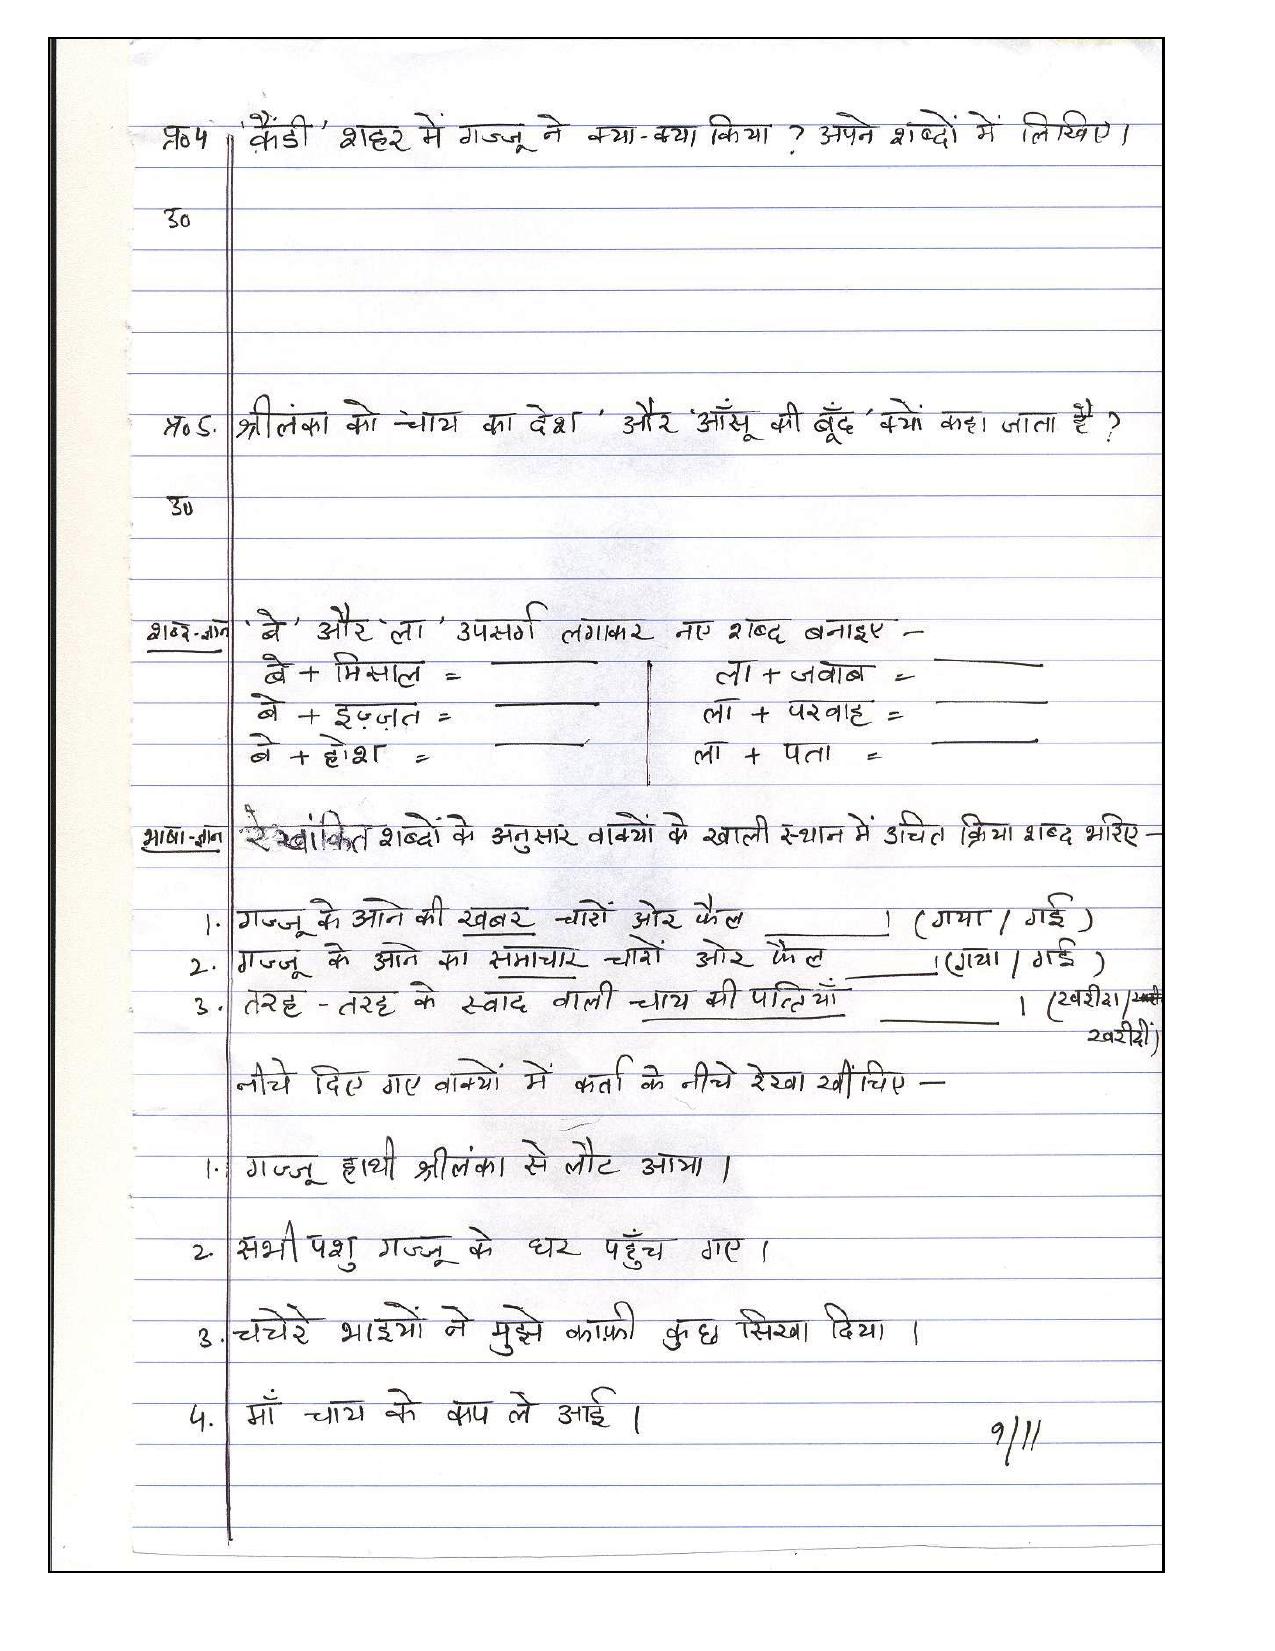 प्र०4 'कैंडी' शहर में गज्जू ने क्या-क्या किया ? अपने शब्दों में लिखिए।
उ०
प्र० 5. श्रीलंका को 'चाय का देश' और 'आँसू की बूँद' क्यों कहा जाता है ?
उ०
शब्द-ज्ञान 'बे' और 'ला' उपसर्ग लगाकर नए शब्द बनाइए –
बे + मिसाल = ______ ला + जवाब = ______
बे + इज़्ज़त = ______ ला + परवाह = ______
बे + होश = ______ ला + पता = ______
भाषा-ज्ञान रेखांकित शब्दों के अनुसार वाक्यों के खाली स्थान में उचित क्रिया शब्द भरिए –
1. गज्जू के आने की खबर चारों ओर फैल ______। (गया / गई)
2. गज्जू के आने का समाचार चारों ओर फैल ______। (गया / गई)
3. तरह - तरह के स्वाद वाली चाय की पत्तियाँ ______। (खरीदा /
खरीदीं)
नीचे दिए गए वाक्यों में कर्ता के नीचे रेखा खींचिए –
1. गज्जू हाथी श्रीलंका से लौट आया।
2. सभी पशु गज्जू के घर पहुँच गए।
3. चचेरे भाइयों ने मुझे काफ़ी कुछ सिखा दिया।
4. माँ चाय के कप ले आई।
9/11